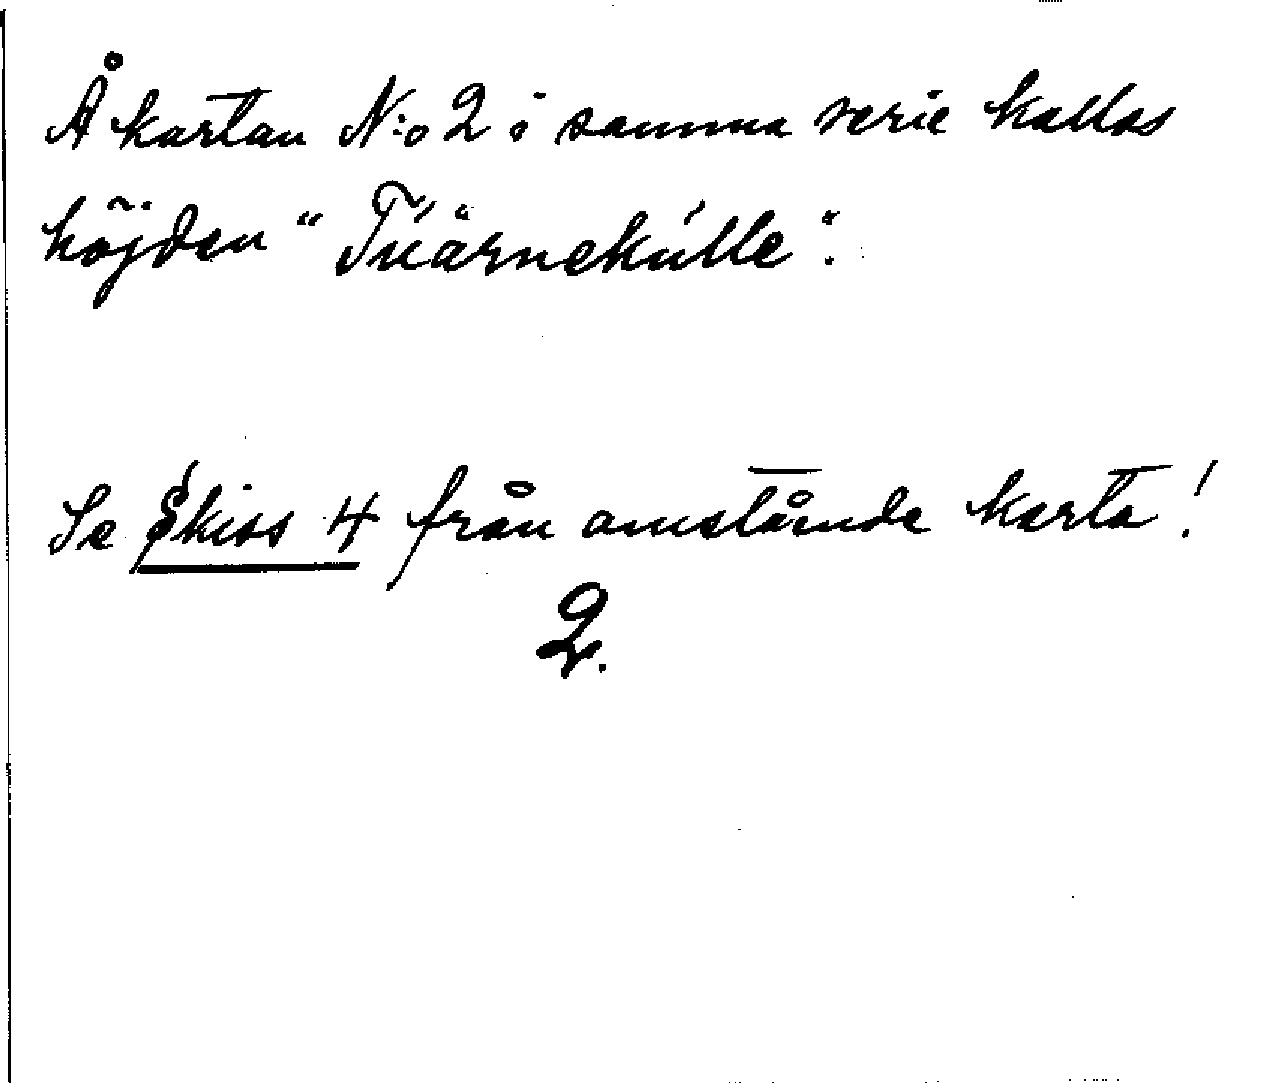 Å kartan N:o 2 i samma serie kallas
höjden "Tuärnekulle".
Se Skiss 4 från omstående karta!
2.